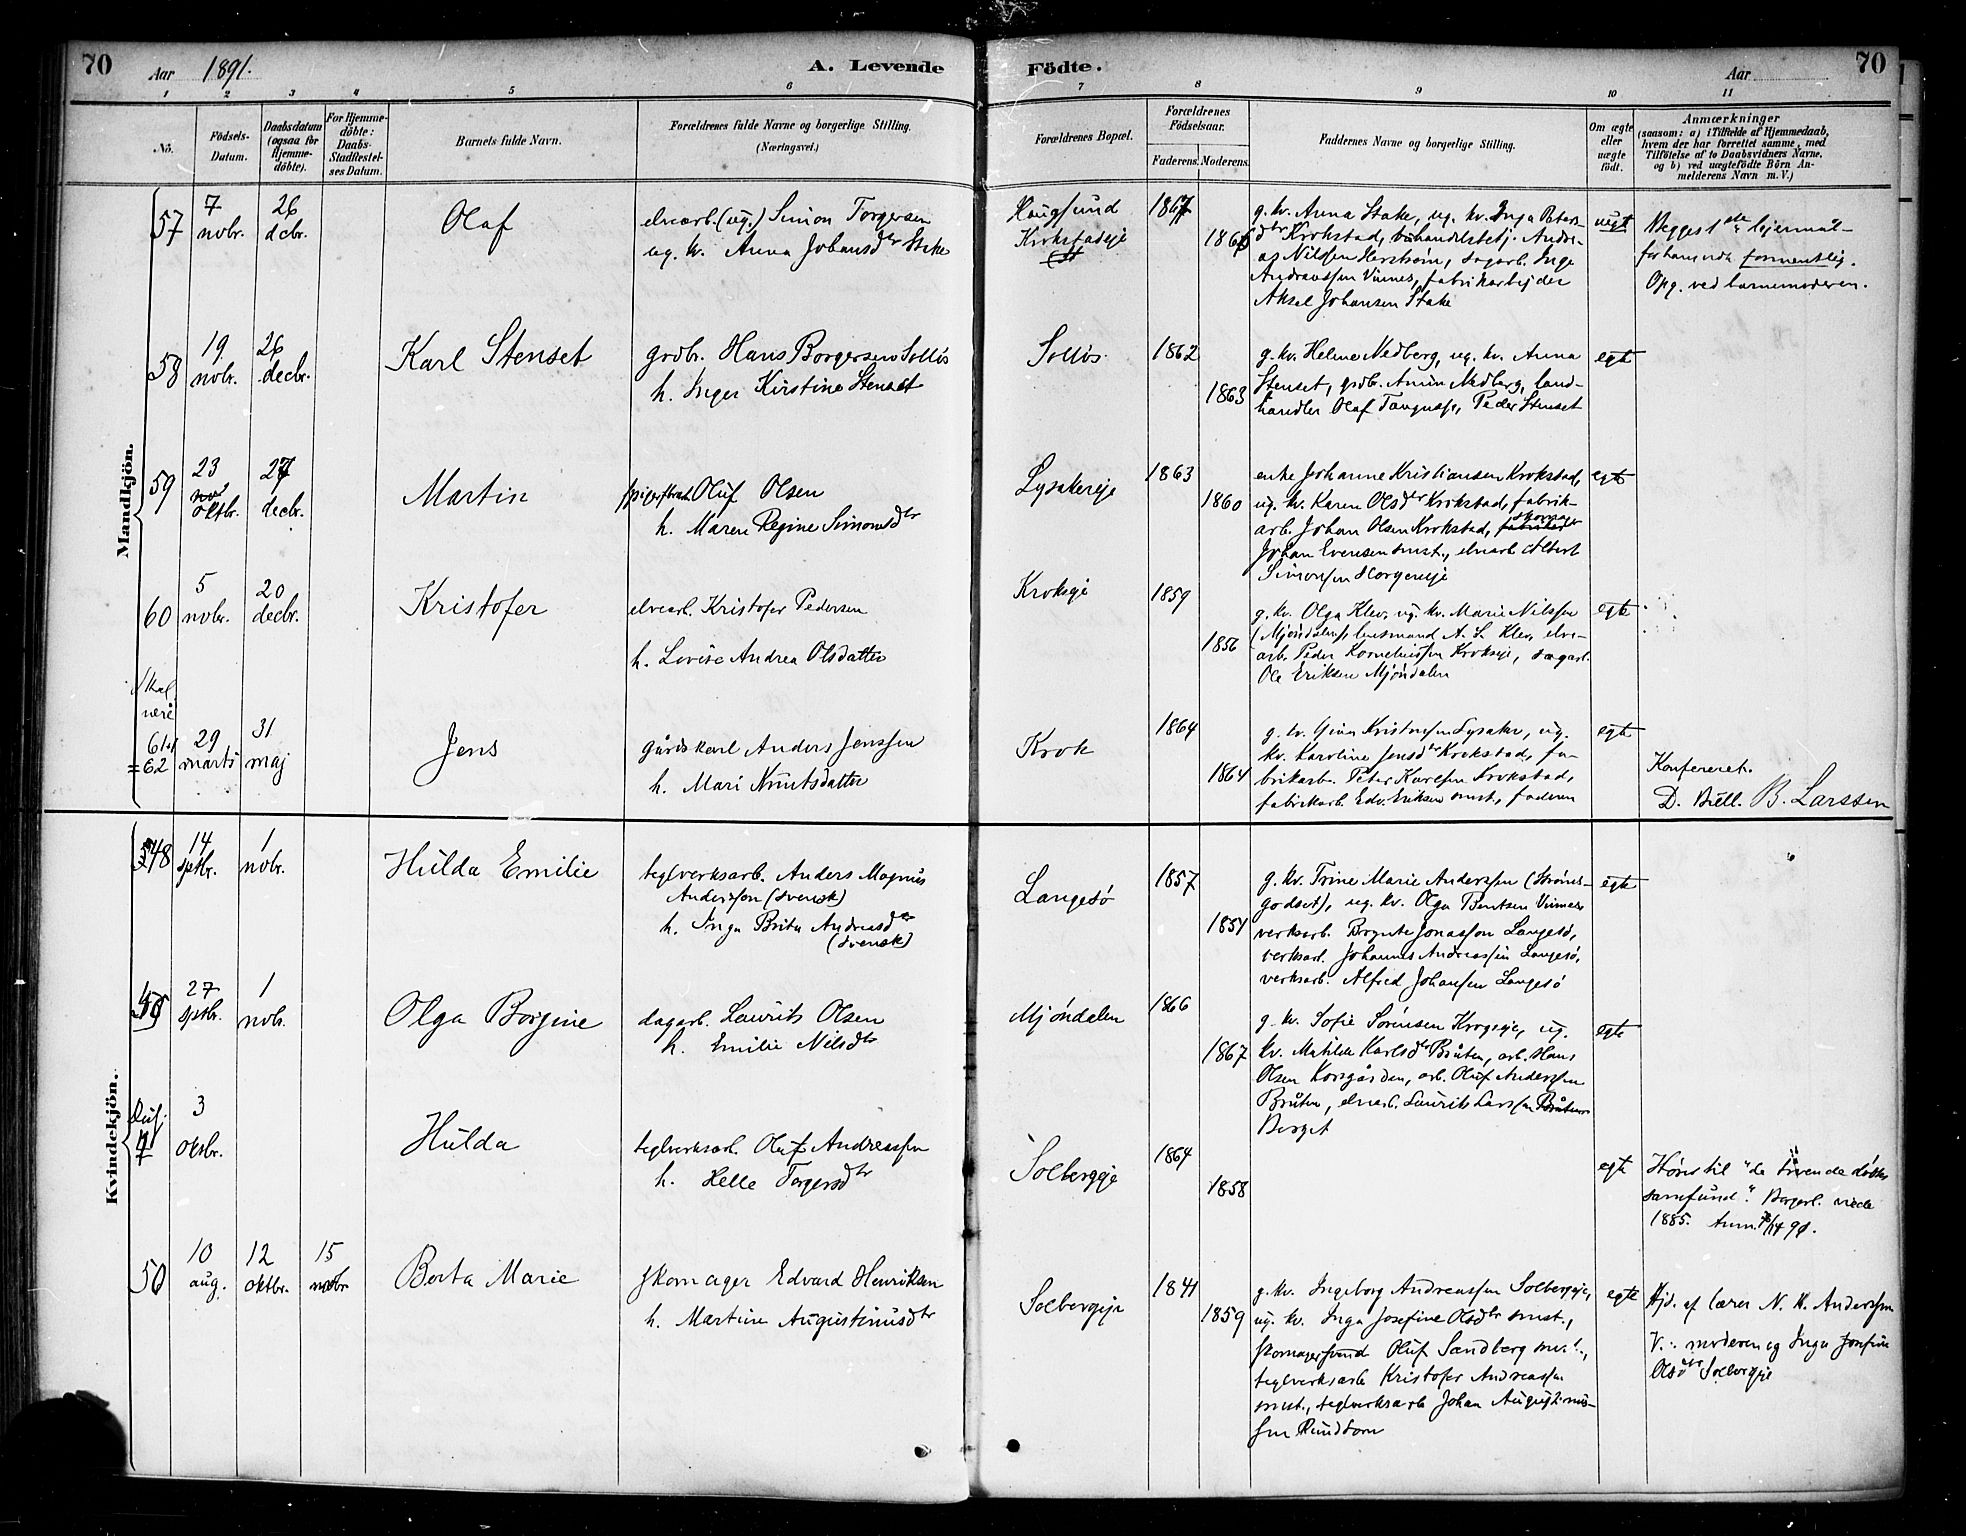 70 Aar 1891. A. Levende
Födte. Aar 70
1 2 3 4 5 6
7 8 9 10 11
No.
Födsels-
Datum.
Daabsdatum
(ogsaa for
Hjemme-
döbte).
For Hjemme-
döbte:
Daabs-
Stadfæstel-
ses Datum.
Barnets fulde Navn.
Forældrenes fulde Navne og borgerlige Stilling.
(Næringsvei.)
Forældrenes Bopæl.
Forældrenes
Födselsaar.
Faderens. Moderens.
Faddernes Navne og borgerlige Stilling.
Om ægte
eller
uægte
födt.
Anmærkninger
(saasom: a) i Tilfælde af Hjemmedaab,
hvem der har forrettet samme, med
Tilföielse af to Daabsvidners Navne,
og b) ved uægtefödte Börn An-
melderens Navn m. V.)
Mandkjön.
57
7
nobr.
26
dcbr.
Olaf
elvearb. (ug.) Simon Torgersen
ug. kv. Anna Johansdtr Stake
Haugsund
Krokstadeje
1867
g. kv. Anna Stake, ug. kv. Inga Peters-
dtr Krokstad, Andre-
as Nilssen sagarb. Inge
Andreassen Vinnes, fabrikarbejder
Aksel Johansen Stake
uegt
Begges 1ste lejermål
formentlig.
Opg. ved barnemoderen.
58
19
nobr.
26
decbr.
Karl Stenset
grdbr. Hans Borgersen Solløs
h. Inger Kirstine Stenset
Solløs
1862
1863
g. kv. Helene Nedberg, ug. kv. Anna
Stenset, grdb. Nedberg, land-
handler Olaf Peder Stenset
egte
59
23
oktbr.
27
decbr.
Martin
Oluf Olsen
h. Maren Regine Simonsdtr
Lysakereje
1863
1860
enke Johanne Kristiansen Krokstad,
ug. kv. Karen Olsdtr Krokstad, fabrik-
arb. Johan Olsen Krokstad, skomager
Johan Evensen smst., elvearb Albert
Simonsen Horgeneje
egte
60
5
nobr.
20
decbr.
Kristofer
elvearb. Kristofer Pedersen
h. Lovise Andrea Olsdatter
Krokseje
1859
1856
g. kv. Olga Klev, ug. kv. Marie Nilssen
(Mjøndalen), lensmand A. L. Klev, elve-
arb. Peder Korneliussen Krokseje, sagarb.
Ole Eriksen Mjøndalen
egte
Skal
være
61
= 62
29
marts
31
maj
Jens
gårdskarl Anders Jenssen
h. Mari Knutsdatter
Krok
1864
1864
g. kv. Gina Kristensen Lysaker, ug.
kv. Karoline Jensdtr Krokstad, fa-
brikarb. Peter Karlsen Krokstad,
fabrikarb. Edv. Eriksen smst., faderen
egte
Konfereret.
D. Bull. B. Larssen
Kvindekjön.
48
14
sptbr.
1
nobr.
Hulda Emilie
teglverksarb. Anders Magnus
Andersson (svensk)
h. Inga Brita Andreasdtr
(svensk)
Langesø
1857
1854
g. kv. Trine Marie Anderssen (Strøms-
godset), ug. kv. Olga Bentsen Vinnes
verksarb. Jonasson Langesø,
verksarb. Johannes Andreassen Langesø,
verksarb. Alfred Johansen Langesø
egte
49
27
sptbr.
1
nobr.
Olga Borgine
dagarb. Laurits Olsen
h. Emilie Nilsdtr
Mjøndalen
1866
1867
g. kv. Sofie Sørensen Krogseje, ug.
kv. Matilde Karlsdtr Bråten, arb. Hans
Olsen Korsgården, arb. Oluf Anderssen
Bråten, elvearb. Laurits Larssen Bråten
Berget
egte
3
oktbr.
Hulda
teglverksarb. Oluf Andreassen
h. Helle Torgersdtr
Solbergeje
1864
1858
egte
Hører til "de troende døbtes
samfund". Borgerl. viede
1885. Anm.
50
10
aug.
12
oktbr.
15
nobr.
Berta Marie
skomager Edvard Henriksen
h. Martine Augustinusdtr
Solbergeje
1841
1859
g. kv. Ingeborg Andreassen Solbergeje,
ug. kv. Inga Josefine Olsdtr smst.,
skomagersvend Oluf Sandberg smst.,
teglverksarb Kristofer Andreassen
smst., teglverksarb Johan Augustinus-
sen Rundtom
egte
Hjd. af lærer N. H. Anderssen
V.: moderen og Inga Josefine
Olsdtr Solbergeje